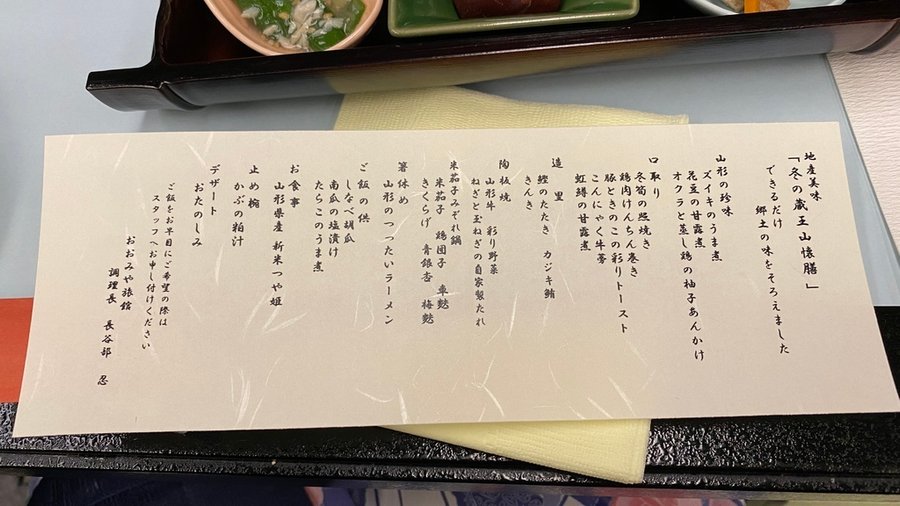 地産美味
「冬の蔵王山懐膳」
できるだけ
郷土の味をそろえました
山形の珍味
ズイキのうま煮
花豆の甘露煮
オクラと蒸し鶏の柚子あんかけ
口取り
冬筍の照焼き
鶏肉けんちん巻き
豚ときのこの彩りトースト
こんにゃく牛蒡
虹鱒の甘露煮
造里
鰹のたたき カジキ鮪
きんき
陶板焼
山形牛 彩り野菜
ねぎと玉ねぎの自家製たれ
米茄子みぞれ鍋
米茄子 鶏団子 車麩
きくらげ 青銀杏 梅麩
箸休め
山形のつったいラーメン
ご飯の供
しなべ胡瓜
南瓜の塩漬け
たらこのうま煮
お食事
山形県産 新米つや姫
止め椀
かぶの粕汁
デザート
おたのしみ
ご飯をお早目にご希望の際は
スタッフへお申し付けください
おおみや旅館
調理長 長谷部 忍